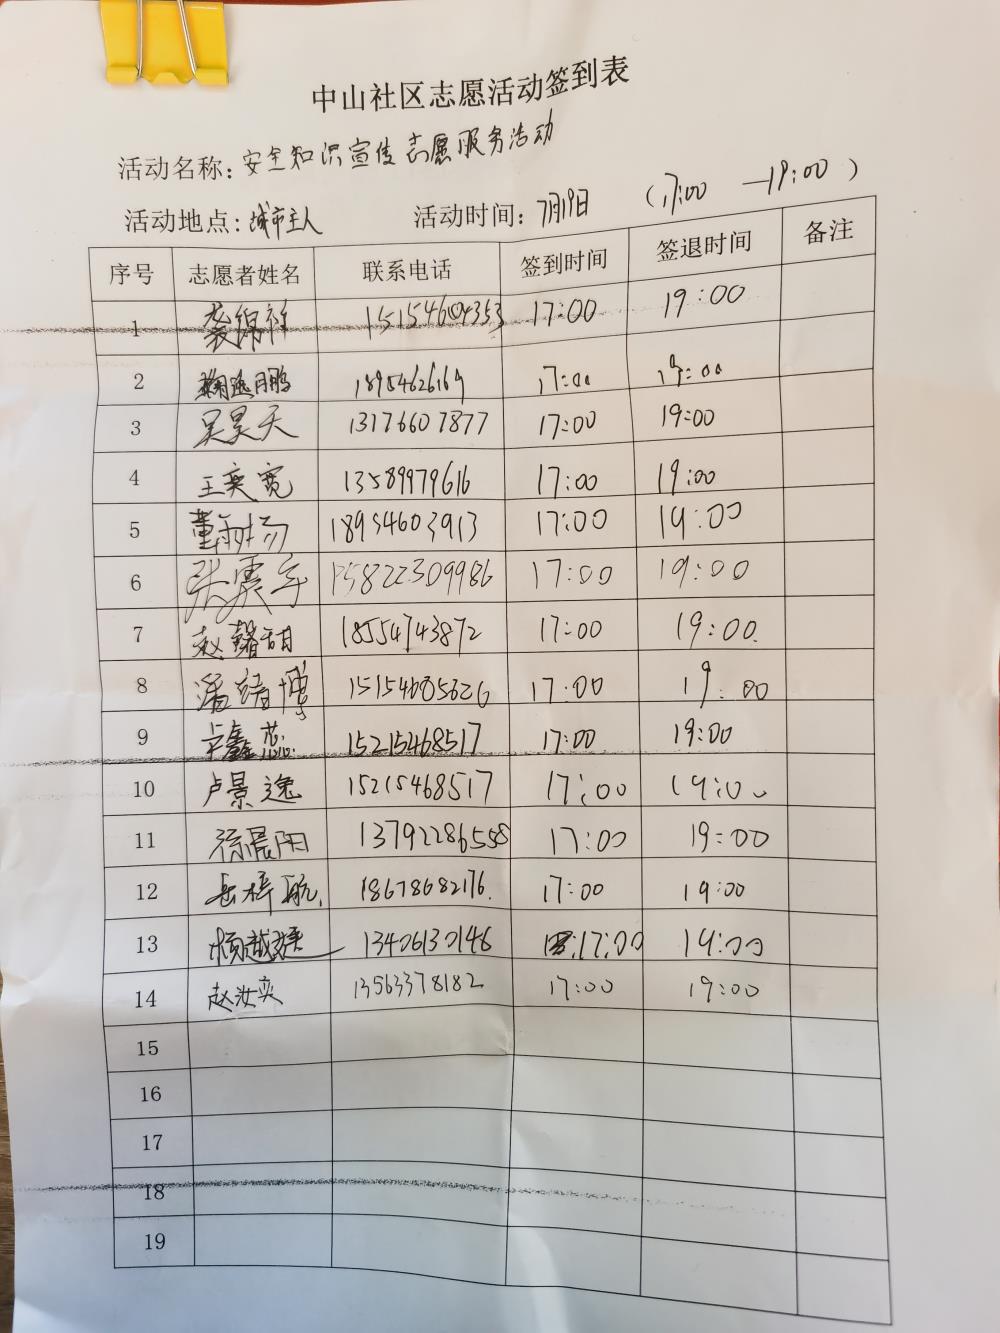 中山社区志愿活动签到表
活动名称: 安全知识宣传志愿服务活动
活动地点: 城市主人 活动时间: 7月19日 (17:00 —19:00)
序号 志愿者姓名 联系电话 签到时间 签退时间 备注
1 17:00 19:00
2 17:00 19:00
3 吴昊天 13176607877 17:00 19:00
4 王奕宽 13589979616 17:00 19:00
5 18954603913 17:00 19:00
6 张震宇 15822309986 17:00 19:00
7 赵馨甜 18554743872 17:00 19:00
8 15154685626 17:00 19:00
9 15215468517 17:00 19:00
10 卢景逸 15215468517 17:00 19:00
11 徐晨阳 13792286558 17:00 19:00
12 岳梓航 18678682176 17:00 19:00
13 13406130146 17:00 19:00
14 赵汝奕 13563378182 17:00 19:00
15
16
17
18
19